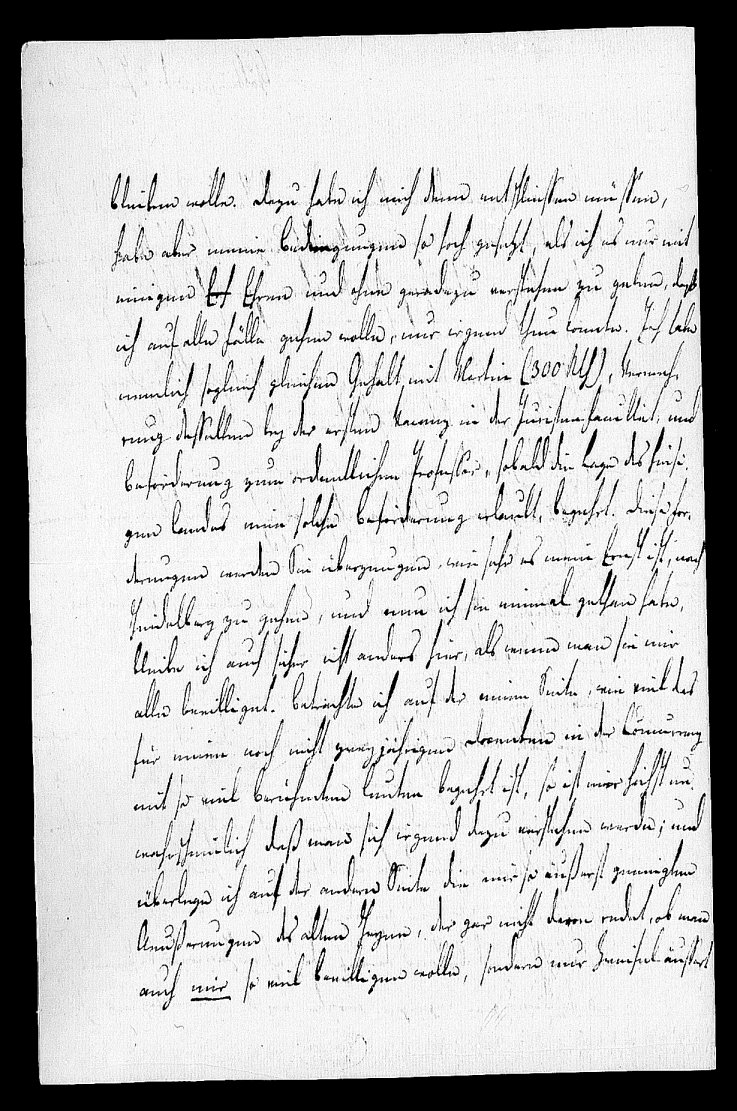 bleiben wolle. Dazu habe ich mich denn entschliessen müssen,
habe aber meine Bedingungen so hoch gesetzt, als ich es nur mit
einigen Ehren und ohne geradezu verstehen zu geben, daß
ich auf alle Fälle gehen wolle, nur irgend thun konnte. Ich habe
nemlich sogleich gleichen Gehalt mit Martin (300 Rth), Vermeh-
rung desselben bey der ersten Vacanz in der Juristenfacultät, und
Beförderung zum ordentlichen Professor, sobald die Lage des hiesi-
gen Landes eine solche Beförderung erlaubt, begehrt. Diese For-
derungen werden Sie überzeugen, wie sehr es meine Ernst ist, nach
Heidelberg zu gehen, und nun ich sie einmal gethan habe,
bleibe ich auch sicher nicht anders hier, als wenn man sie mir
alle bewilliget. Betrachte ich auf der einen Seite, wie viel das
für einen noch nicht zweyjährigen Docenten in der Concurrenz
mit so viel berühmten Leuten begehrt ist, so ist mir höchst un-
wahrscheinlich daß man sich irgend dazu verstehen werde; und
überlege ich auf der andern Seite die mir so äußerst geneigten
Aeußerungen des alten Heyne, der gar nicht davon redet, ob man
auch mir so viel bewilligen wolle, sondern nur Zweifel äussert